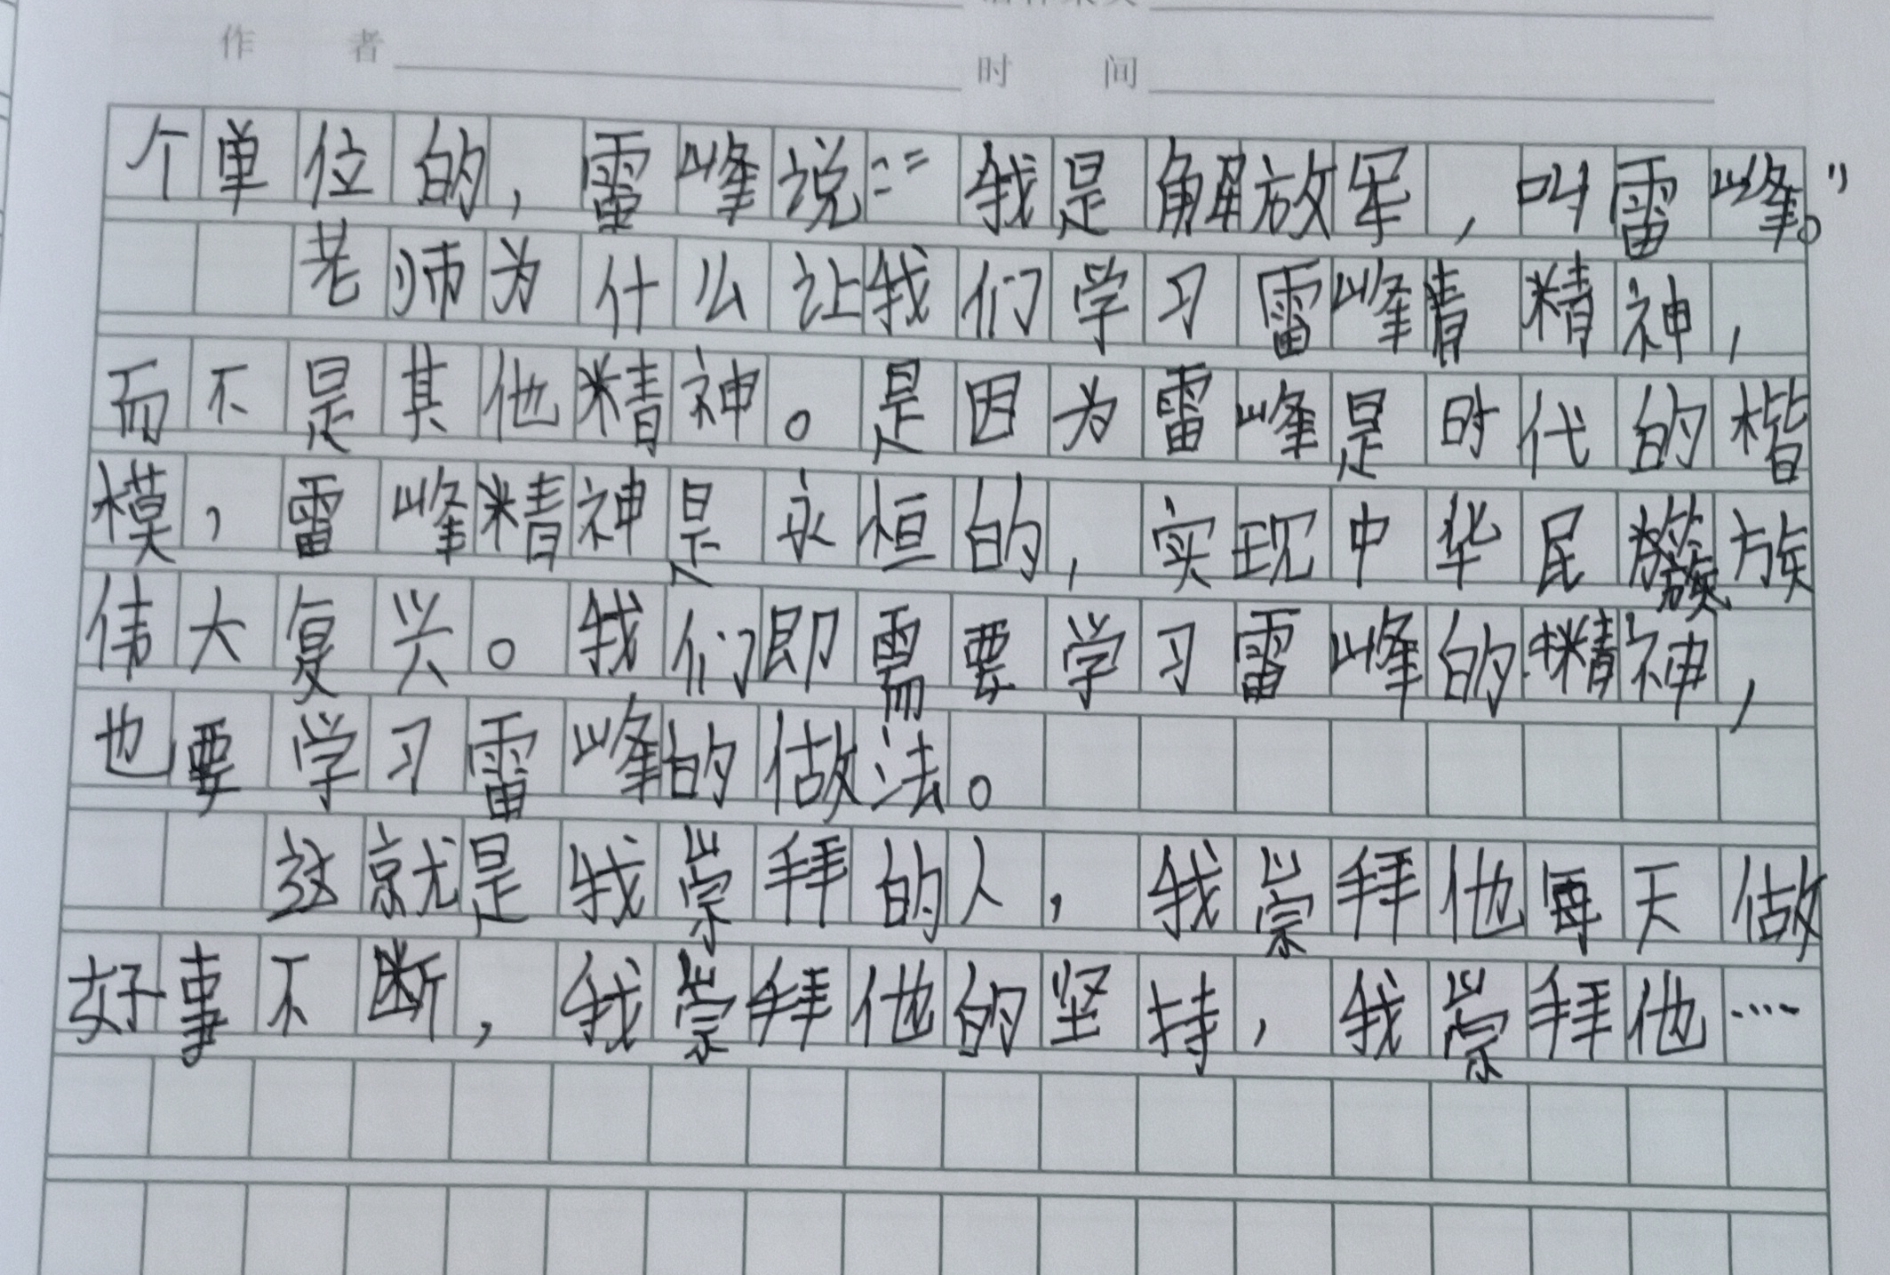 作 者 时 间
个单位的，雷峰说："我是解放军，叫雷峰。"
老师为什么让我们学习雷峰精神，
而不是其他精神。是因为雷峰是时代的楷
模，雷峰精神是永恒的，实现中华民族
伟大复兴。我们即需要学习雷峰的精神，
也要学习雷峰的做法。
这就是我崇拜的人，我崇拜他每天做
好事不断，我崇拜他的坚持，我崇拜他…